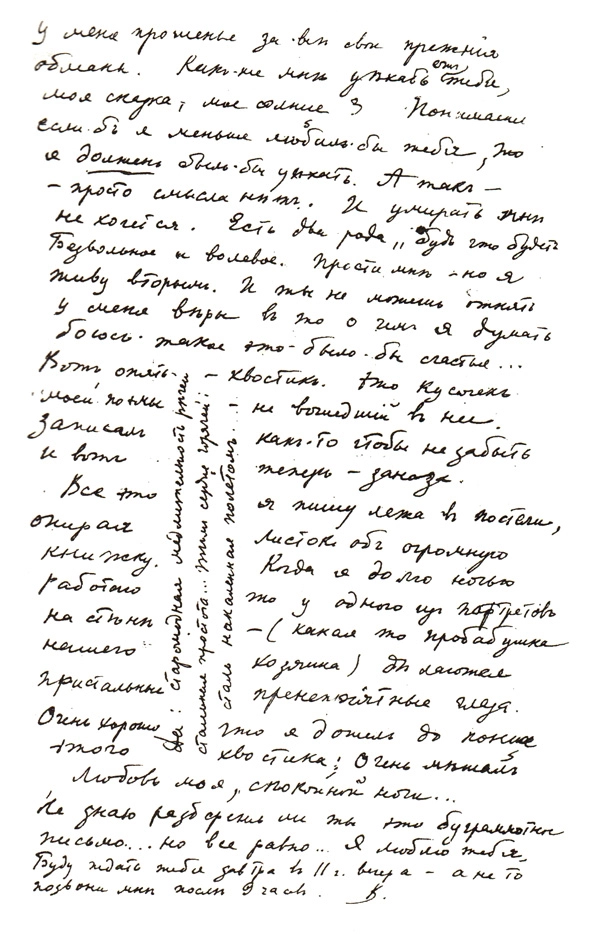 у меня прощенье за все свои прежнія
обманы. Какъ-же мнѣ уѣхать отъ тебя,
моя сказка, мое солнце? Понимаешь
если-бъ я меньше любилъ-бы тебя, то
я должен былъ-бы уѣхать. А такъ –
– просто смысла нѣтъ. И умирать мнѣ
не хочется. Есть два рода „будь что будетъ".
Безвольное и волевое. Прости мнѣ – но я
живу вторымъ. И ты не можешь отнять
у меня вѣры въ то о чемъ я думать
боюсь – такое это было-бы счастье...
Вотъ опять – – хвостикъ. Это кусочекъ
моей поэмы не вошедшій въ нее.
Записалъ какъ-то чтобы не забыть
и вотъ теперь – заноза.
Все это я пишу лежа въ постели,
опирая листокъ объ огромную
книжку. Когда я долго ночью
работаю то у одного изъ портретовъ
на стѣнѣ – (какая то пробабушка
нашего хозяина) дѣлаются
пристальные пренепріятные глаза.
Очень хорошо что я дошелъ до конца
этого хвостика; Очень мѣшалъ
Да: старомодная медлительность рѣчи
стальная простота... Тѣмъ сердце горячѣй:
сталь накаленная полетомъ...
Любовь моя, спокойной ночи...
Не знаю разберешь ли ты это безграмотное
письмо... но все равно... Я люблю тебя.
Буду ждать тебя завтра въ 11 г. вечера – а не то
позвони мнѣ послѣ 9 часовъ. В.